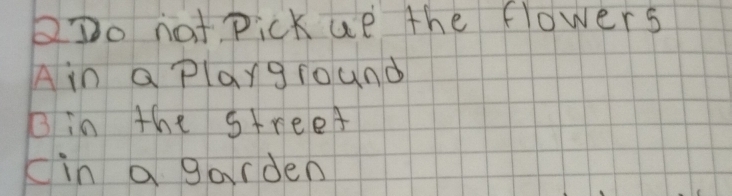 2 Do not Pick up the flowers
A in a Playground
B in the street
C in a garden